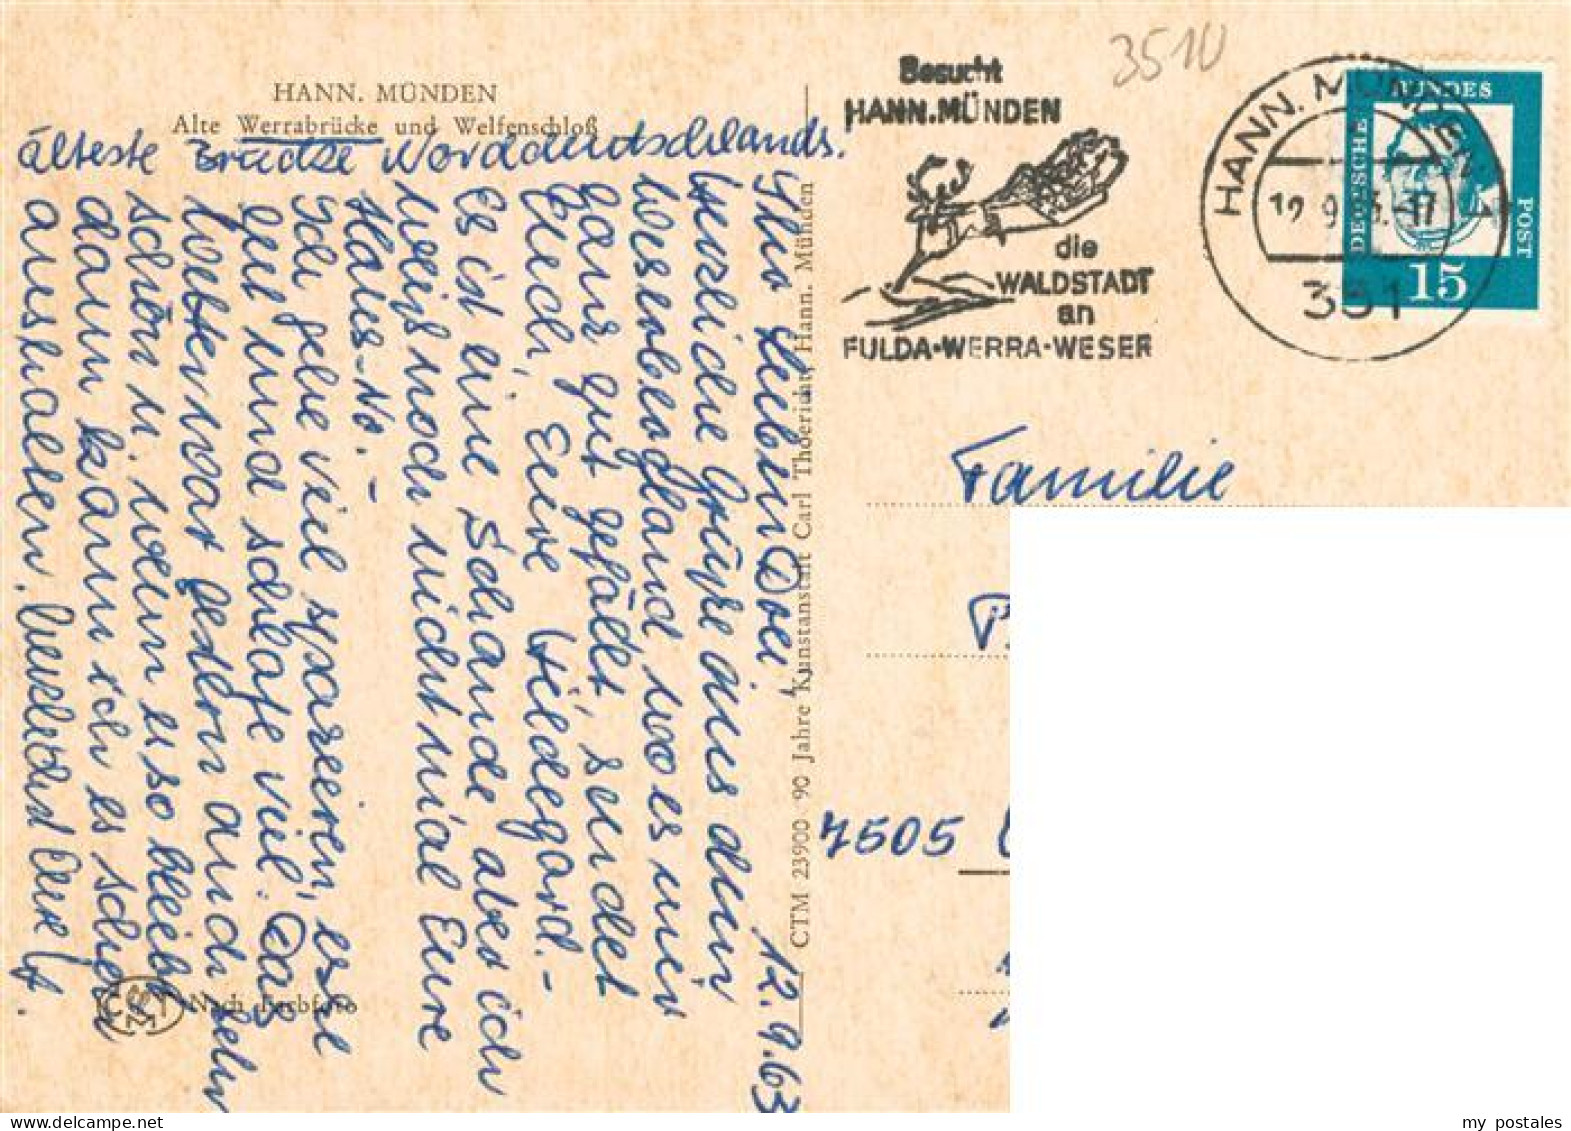 HANN. MÜNDEN
Alte Werrabrücke und Welfenschloß
älteste Brücke Norddeutschlands.
12.9.63
Ihr Lieben Doll,
herzliche Grüße aus dem
Weserbergland, wo es mir
ganz gut gefällt, sendet
Euch, Eure Hildegard.-
Es ist eine Schande aber ich
weiß noch nicht mal Eure
Haus-No.-
Ich gehe viel spazieren, esse
gut und schlafe viel. Das
Wetter war gestern auch sehr
schön u. wenn es so bleibt
dann kann ich es schon
aushalten.
Nach Farbfoto
CTM 23900 90 Jahre Kunstanstalt Carl Thoericht, Hann. Münden
3510
Besucht
HANN.MÜNDEN
die
WALDSTADT
an
FULDA-WERRA-WESER
HANN. MÜNDEN
12.9.63.-17
351
DEUTSCHE
BUNDES
POST
15
Familie
7505
my postales